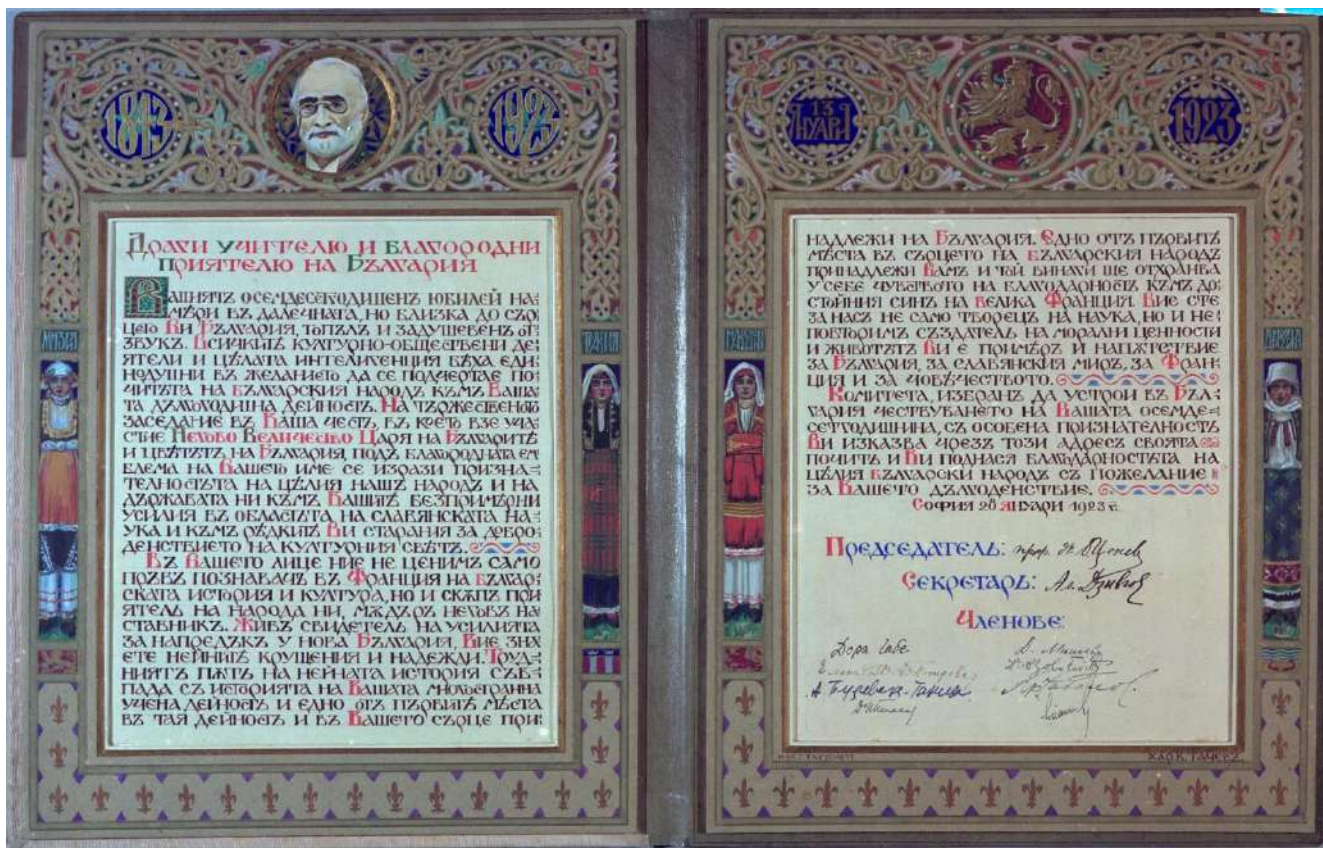 1843
1923
Драги учителю и благородни
приятелю на България
Вашиятъ осемдесетгодишенъ юбилей на=
мѣри въ далечната, но близка до сър=
цето Ви България, топълъ и задушевенъ от=
звукъ. Всичкитѣ културно-обществени де=
ятели и цѣлата интелигенция бѣха еди=
нодушни въ желанието да се подчертае по=
читьта на българския народъ къмъ Ваша=
та дългогодишна дейность. На тържественото
заседание въ Ваша честь, въ което взе уча=
стие Негово Величество Царя на Българитѣ
и цвѣтътъ на България, подъ благородната ем=
блема на Вашето име се изрази призна=
телностьта на цѣлия нашъ народъ и на
държавата ни къмъ Вашитѣ безпримѣрни
усилия въ областьта на славянската на=
ука и къмъ рѣдкитѣ Ви старания за добро=
денствието на културния свѣтъ.
Въ Вашето лице ние не ценимъ само
пръвъ познавачъ въ Франция на българ=
ската история и култура, но и скѫпъ при=
ятель на народа ни, мѫдъръ неговъ на=
ставникъ. Живъ свидетель на усилията
за напредъкъ у нова България, Вие зна=
ете нейнитѣ крушения и надежди. Труд=
ниятъ пѫть на нейната история съв=
пада съ историята на Вашата многостранна
учена дейность и едно отъ първитѣ мѣста
въ тая дейность и въ Вашето сърце при=
Мизия
Тракия
13
Януари
1923
надлежи на България. Едно отъ първитѣ
мѣста въ сърцето на българския народъ
принадлежи Вамъ и той винаги ще отхранва
у себе чувството на благодарность къмъ до=
стойния синъ на велика Франция. Вие сте
за насъ не само творецъ на наука, но и не=
повторимъ създатель на морални ценности
и животътъ Ви е примѣръ и напѫтствие
за България, за славянския миръ, за Фран=
ция и за човѣчеството.
Комитета, избранъ да устрои въ Бъл=
гария чествуването на Вашата осемде=
сетгодишина, съ особена признателность
Ви изказва чрезъ този адресъ своята
почить и Ви поднася благодарностьта на
цѣлия български народъ съ пожелание
за Вашето дългоденствие.
София 28 януари 1923 г.
Председатель: проф. Б. Цонев
Секретарь: Ал.
Членове:
Дора Габе
А. Будевска-Ганчева
Хар. Тачевъ